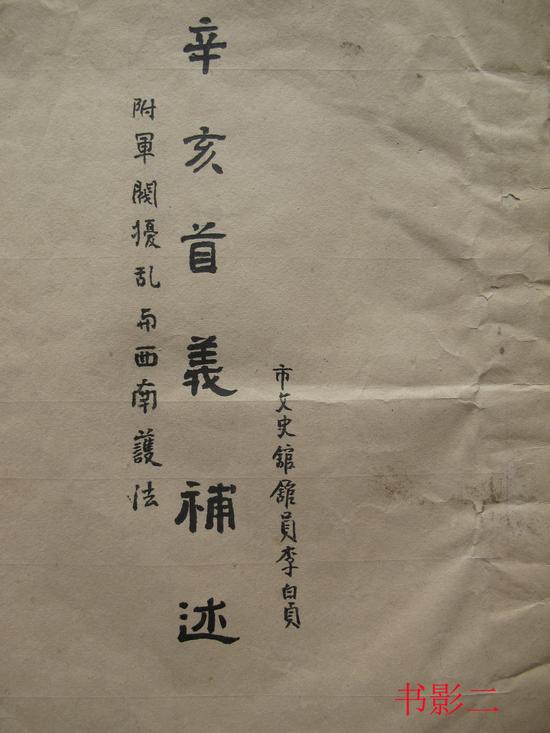 市文史舘舘員李白貞
辛亥首義補述
附軍閥擾乱与西南護法
书影二